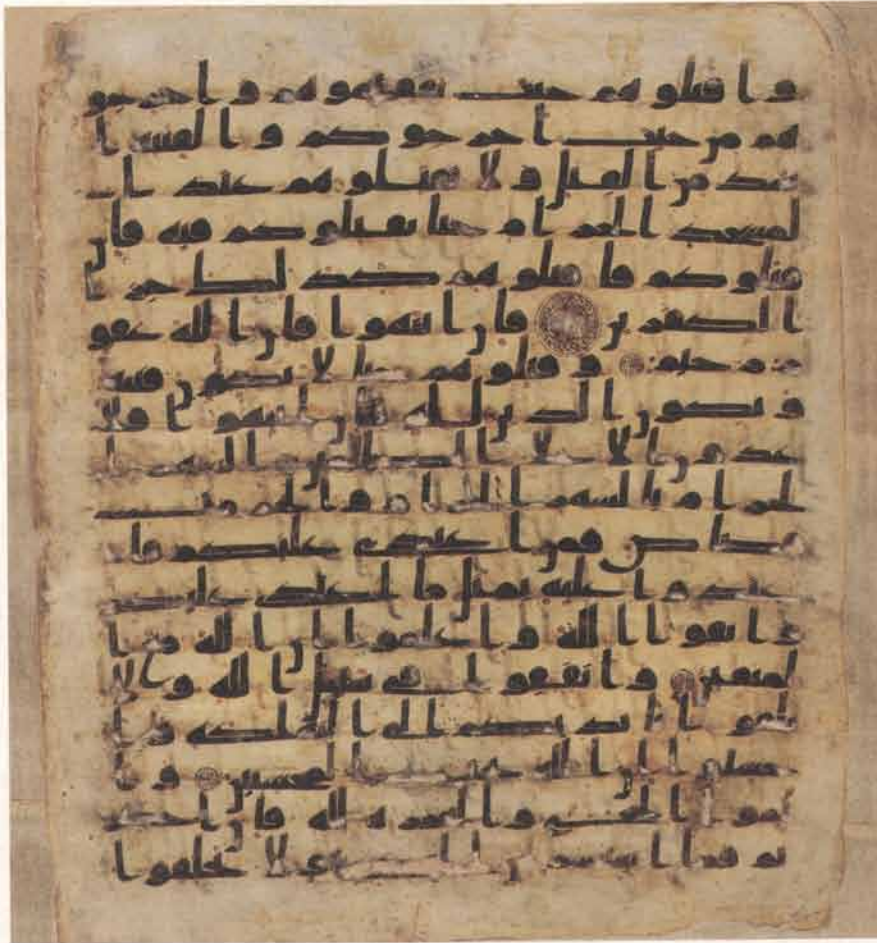 واقتلوهم حيث ثقفتموهم واخرجو
هم من حيث اخرجوكم والفتنة ا
شد من القتل ولا تقتلوهم عند ا
لمسجد الحرام حتا يقتلوكم فيه فان
قتلوكم فاقتلوهم كذلك جزا
الكفرين فان انتهوا فان الله غفو
ر رحيم وقتلوهم حتا لا تكون فتنة
ويكون الدين لله فان انتهوا فلا
عدون الا على الظلمين الشهر ا
لحرام بالشهر الحرام والحرمت
قصاص فمن اعتدى عليكم فا
عتدوا عليه بمثل ما اعتدى عليكم
واتقوا الله واعلموا ان الله مع ا
لمتقين وانفقوا في سبيل الله ولا
تلقوا بايديكم الى التهلكة وا
حسنوا ان الله يحب المحسنين وا
تموا الحج والعمرة لله فان احصر
تم فما استيسر من الهدي ولا تحلقوا